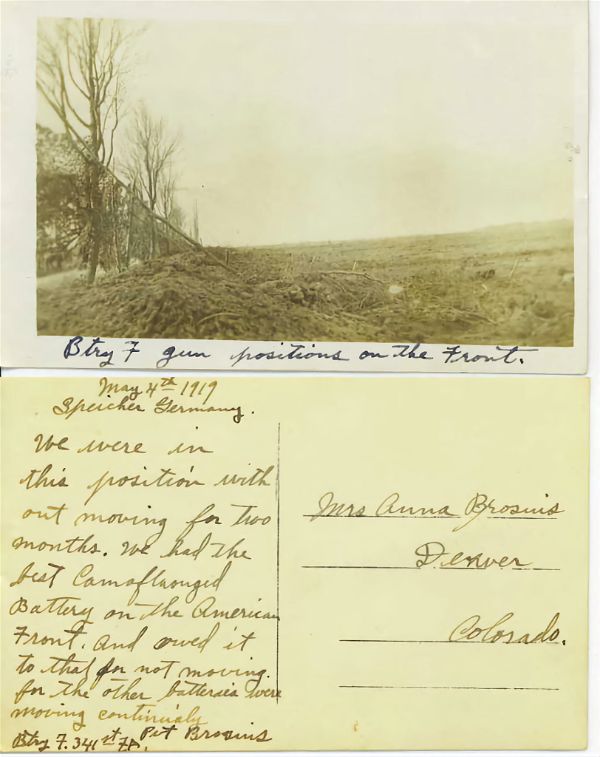 Btry F gun positions on the Front.
May 4th 1919
Speicher Germany.
We were in
this position with
out moving for two
months. We had the
best Camofluonged
Battery on the American
Front. And owed it
to that for not moving.
for the other batteries were
moving continualy
Btry F. 341st FA. Pvt Brosius
Mrs Anna Brosius
Denver
Colorado.